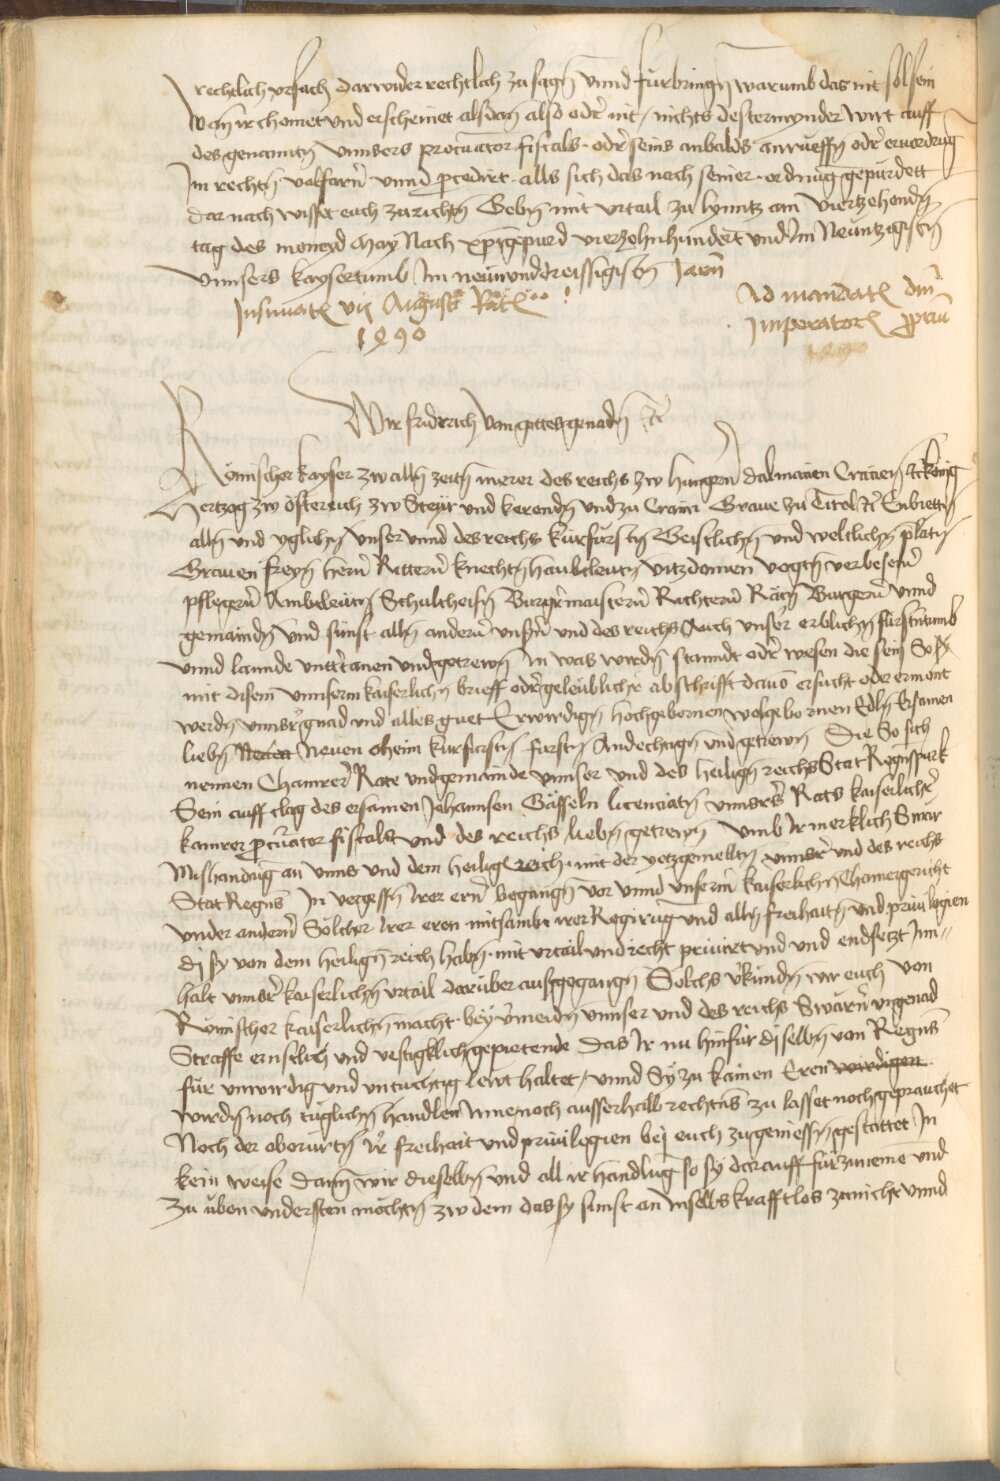 rechtlich ursach darwider rechtlich zu sagn̄ unnd fürbringn̄ warumb das nit sol sein
Wan̄ ir chomet und erscheinet alsdan̄ also odr̄ nit / nichts destermynder wirt auff
des genantn̄ unnsers procurator fiscals odr̄ seins anbalds anrueffn̄ odr̄ ervordrūg
Im rechtn̄ volfarn̄ unnd procedirt alls sich das nach seiner ordnūg gepürdett
dar nach wisset euch zurichtn̄ Gebn̄ mit urtail zu lynntz am viertzehendn̄
tag des moneyd May Nach xp̄i gepurd vierzehnhundert und Im Neuntzigistn̄
unnsers kaysertumb Im neunundreissigistn̄ Jarn̄
Insinuatū vij Augusti Ratū
1490
Ad mandatū dn̄i
Imperatorꝭ p̄priū
Wir fridrich von gottes genadn̄ ꝛc
Römischer kayser zw alln̄ zeitn̄ merer des reichs zw hungern̄ dalmatien Craciern̄ ꝛc König
Hertzog zw österreich zw Steyr und kerendn̄ und zu Crain Grave zu Tirol ꝛc Enbietn̄
alln̄ und yglichn̄ unser unnd des reichs kurfürstn̄ Geistlichn̄ und weltlichn̄ p̄latn̄
Graven freyn̄ hern̄ Rittern̄ knechtn̄ haubtleutn̄ vitzdomen vogtn̄ verbesern̄
pflegern̄ Ambtleutn̄ Schultheisn̄ Burgermaistern̄ Richtern̄ Rätn̄ Burgern̄ unnd
gemaindn̄ und sunst alln̄ andern̄ unsn̄ und des reichs Auch unser erblichn̄ fürstntumb
unnd lannde unttr̄tanen und getrewn̄ in was wirdn̄ stanndt odr̄ wesen die sein So sy
mit disem unnserm kaiserlichn̄ brieff odr̄ geleublichr̄ abschrifft davō ersucht oder ermont
werdn̄ unnsr̄ gnad und alles guet Erwirdign̄ hochgebornen wolgebornen Edln̄ Ersamen
liebn̄ Neven oheim kurfürstn̄ furstn̄ Andechtign̄ und getrewn̄ Die So sich
nennen Chamrer̄ Räte und gemainde unnser und des heilign̄ reichs Stat Regnspurk
Sein auff clag des ersamen Johannsen Gässeln licenciatn̄ unnsrs̄ Rats kaiserlichr̄
kamrer procurator fiscals und des reichs liebn̄ getrewn̄ umb Ir merklich Swär
Mishandūg an unns und dem heilign̄ reich mit der yetzgemeltn̄ unnsr̄ und des reichs
Stat Regns̄ In vergessn̄ Irer ern̄ begangn̄ vor unnd unserm̄ kaiserlichn̄ Chamergericht
under andern̄ Sölcher Irer eren mitsambt irer Regirūg und alln̄ freihaitn̄ und privilegien
di sy von dem heilign̄ reich habn̄ mit urtail und recht privirt und und endsetzt Inn=
halt unnsr̄ kaiserlichn̄ urtail darüber ausgegangn̄ Solchs v̄kündn̄ wir euch von
Römischer kaiserlichn̄ macht bey v̄meidn̄ unnser und des reichs Swärn̄ ungenad
Straffe ernstlich und vestigklich gepietende Das Ir nu hinfür di selbn̄ von Regns̄
für unwirdig und untuchtig lewt haltet / unnd Sy zu kainen Eren wirdigen
wirdn̄ noch tuglichn̄ handlen Inne noch ausserhalb rechtns̄ zu lasset noch geprauchet
Noch der oberurtn̄ Ir freihait und privilegien bej euch zugeniessn̄ gestattet In
kein weise Dann̄ wir dieselbn̄ und all ir handlūg so sy darauff fürzuneme und
zu üben understen möchtn̄ zw dem das sy sunst an Inselbs krafftlos zunicht unnd